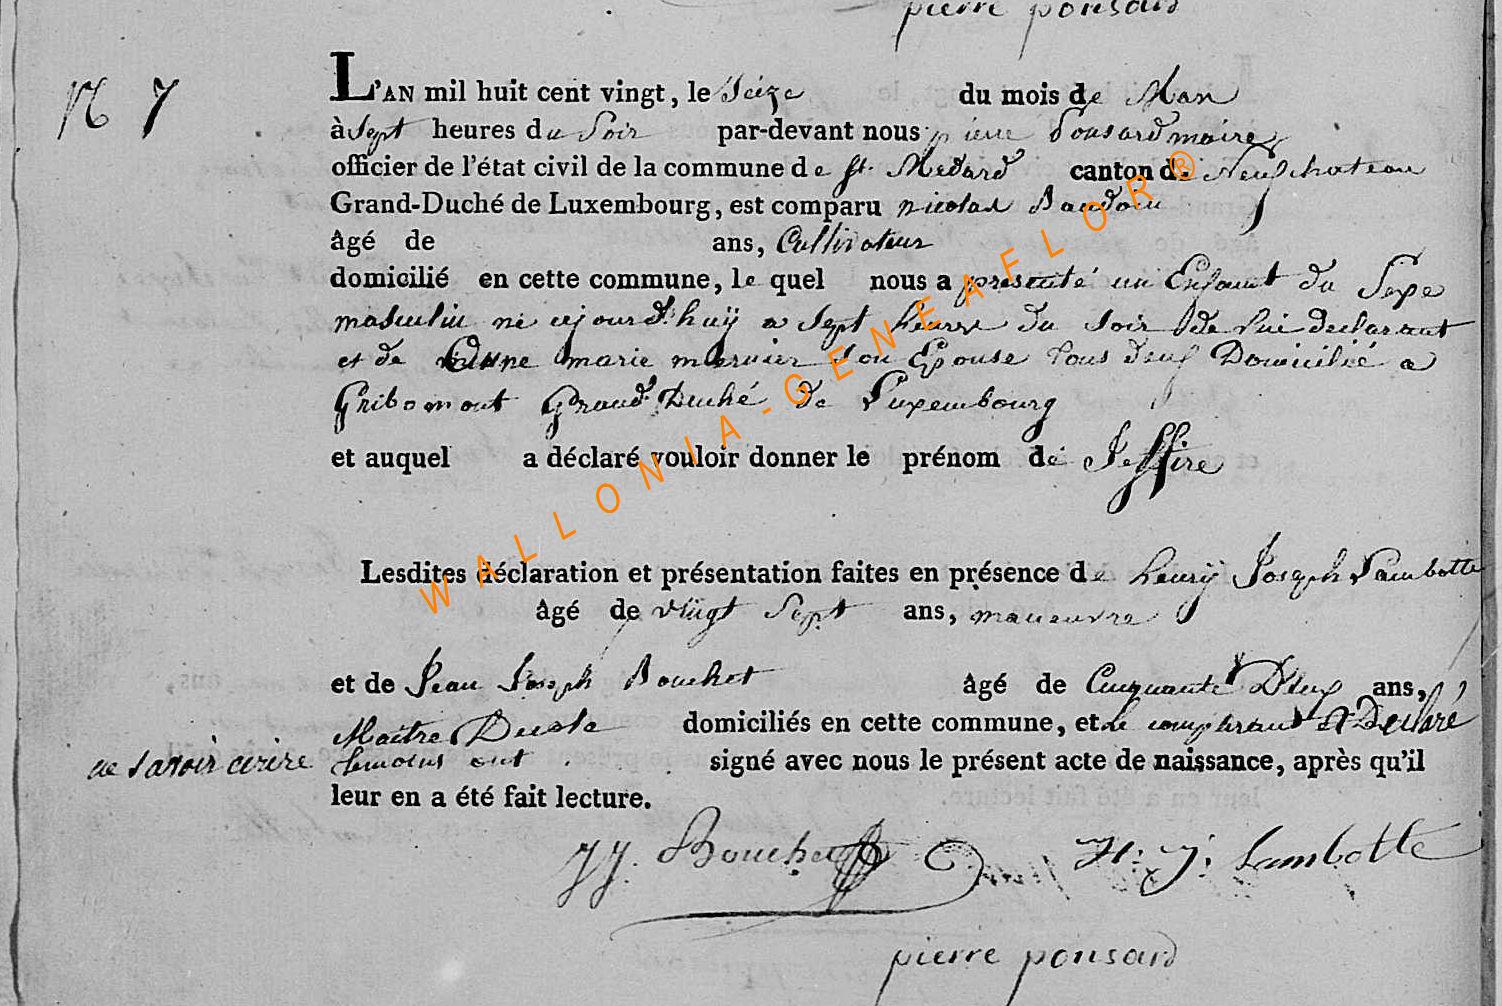 pierre ponsard
N 7
L'AN mil huit cent vingt, le Seize du mois de Mars
à Sept heures du Soir par-devant nous pierre Ponsard maire
officier de l'état civil de la commune de St. Medard canton de Neufchateau
Grand-Duché de Luxembourg, est comparu nicolas Baudoin
âgé de ans, Cultivateur
domicilié en cette commune, le quel nous a presenté un Enfant du Sexe
masculin né cejourd'huÿ a Sept heures du Soir de lui declarant
et de marie mernier Son Epouse tous deux Domicilié a
Gribomont Grand Duché de Luxembourg
et auquel a déclaré vouloir donner le prénom de Jeffire
Lesdites déclaration et présentation faites en présence de henrÿ Joseph Lambotte
âgé de vingt Sept ans, maneuvre
et de Jean Joseph Bouchet âgé de Cinquante Deux ans,
Maitre domiciliés en cette commune, et le comparant a Declaré
ne Savoir ecrire temoins ont signé avec nous le présent acte de naissance, après qu'il
leur en a été fait lecture.
JJ. Bouchet H: J: Lambotte
pierre ponsard
WALLONIA-GENEAFLOR®